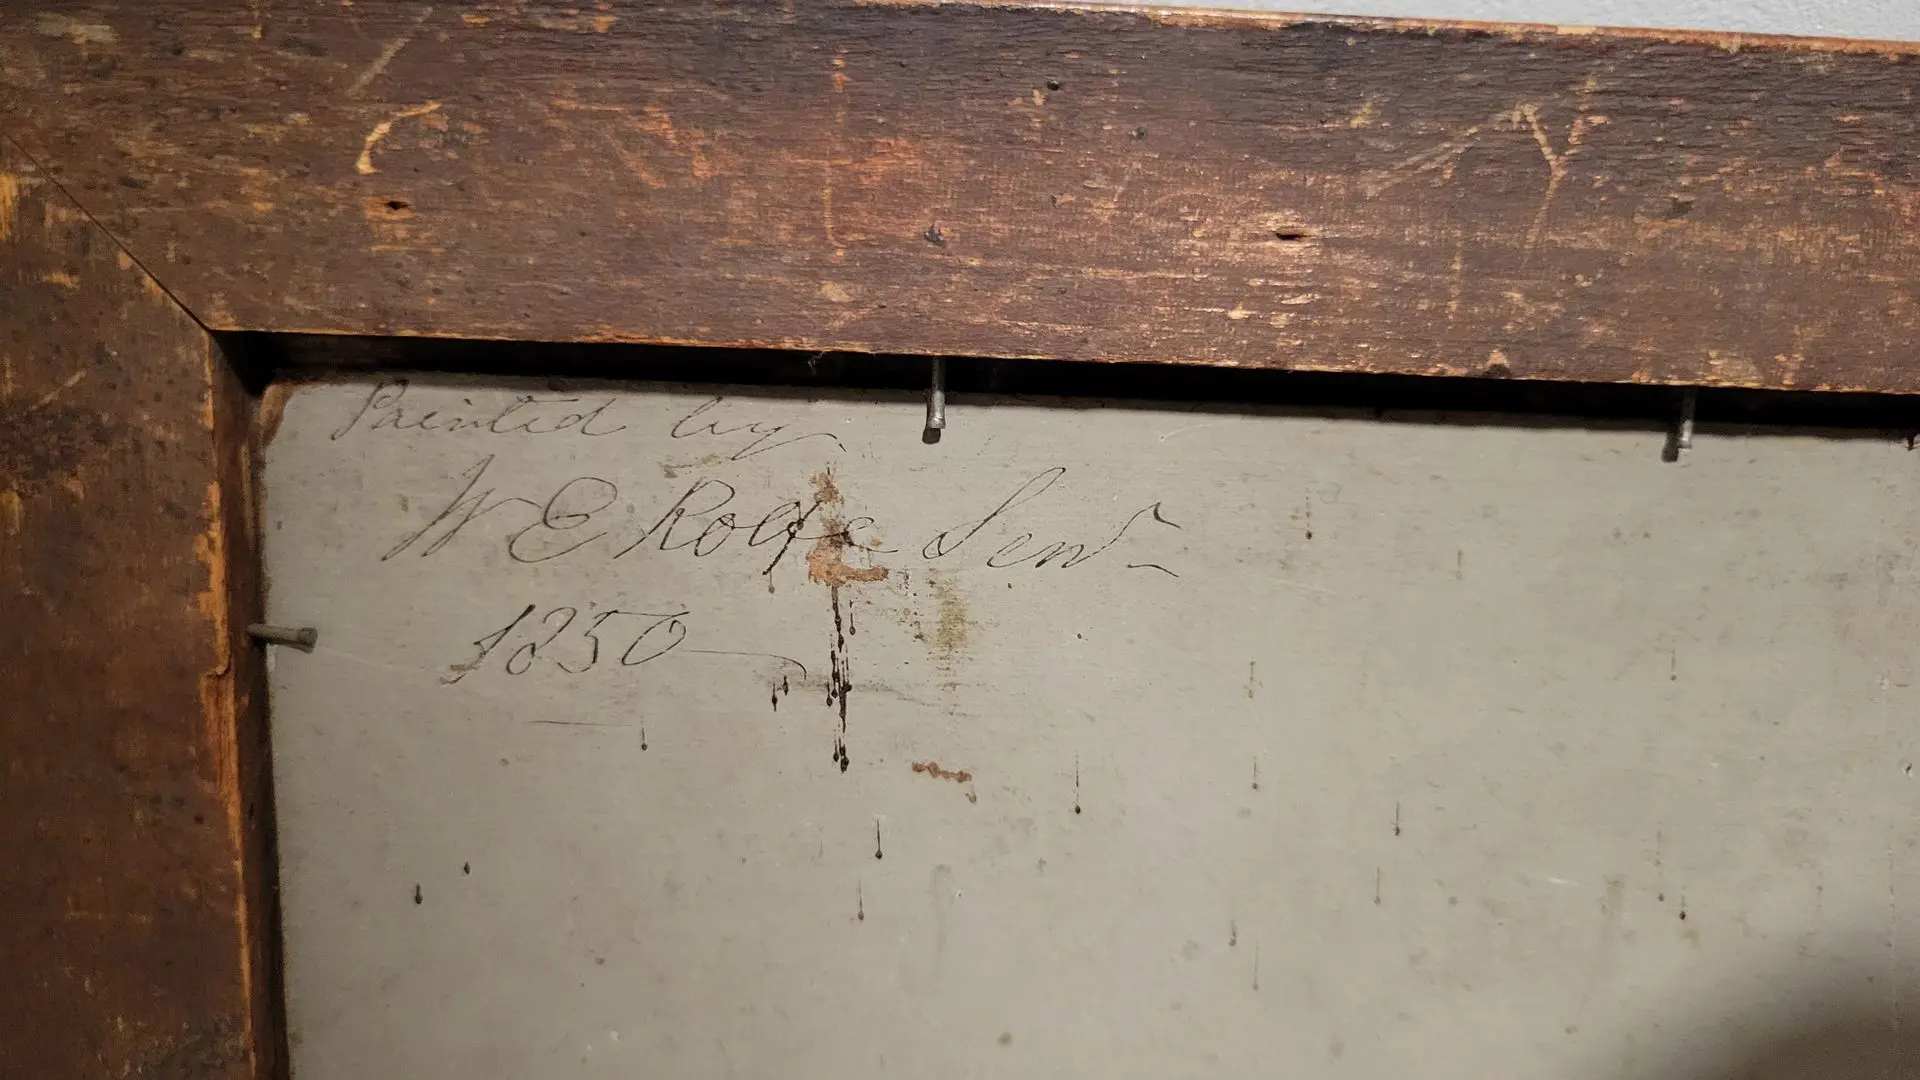 Painted by
W E Rolfe Senr
1850